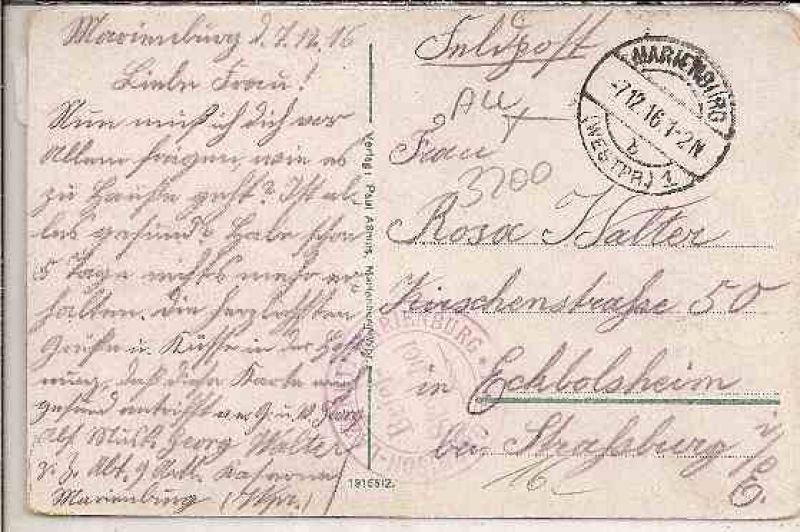 Marienburg d. 7.12.16
Liebe Frau!
Nun muß ich Dich vor
Allem fragen, wie es
zu Hause geht? Ist al-
les gesund? Habe schon
5 Tage nichts mehr er-
halten. Die herzlichsten
Grüße u. Küsse in der Hoff-
nung, daß diese Karte euch
gesund antrifft
Georg
Musk. Georg Walter
z. Z. Abt. 9 Kaserne
Marienburg (Wpr.)
Verlag: Paul
191682.
Feldpost
MARIENBURG
-7.12.16.1-2N
b
(WESTPR.) 1.
An
Frau
3200
Rosa Walter
Kirschenstraße 50
in Eckbolsheim
bei Straßburg i/E.
16
MARIENBURG